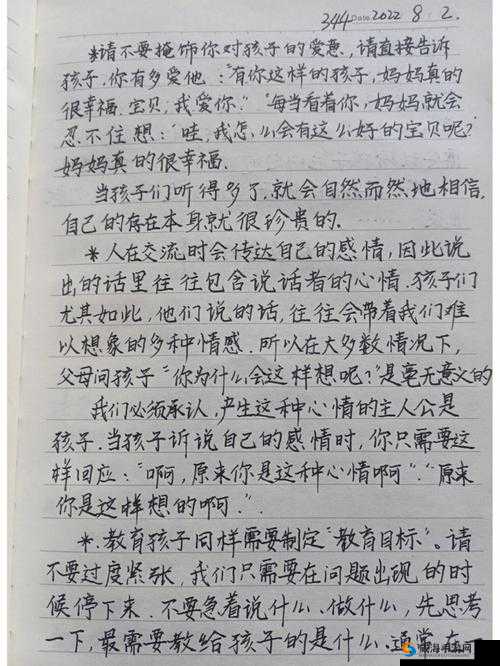 344 Date 2022 8. 2.
*请不要掩饰你对孩子的爱意,请直接告诉
孩子.你有多爱他:“有你这样的孩子,妈妈真的
很幸福.宝贝,我爱你.”“每当看着你,妈妈就会
忍不住想:“哇,我怎么会有这么好的宝贝呢?
妈妈真的很幸福.
当孩子们听得多了,就会自然而然地相信,
自己的存在本身就很珍贵的.
*人在交流时会传达自己的感情,因此说
出的话里往往包含说话者的心情.孩子们
尤其如此,他们说的话,往往会带着我们难
以想象的多种情感.所以在大多数情况下,
父母问孩子“你为什么会这样想呢?”是毫无意义的
我们必须承认,产生这种心情的主人公是
孩子.当孩子诉说自己的感情时,你只需要这
样回应:“啊,原来你是这种心情啊”.“原来
你是这样想的啊”.
*.教育孩子同样需要制定“教育目标”。请
不要过度紧张,我们只需要在问题出现的时
候停下来.不要急着说什么、做什么,先思考
一下,最需要教给孩子的是什么.通常在